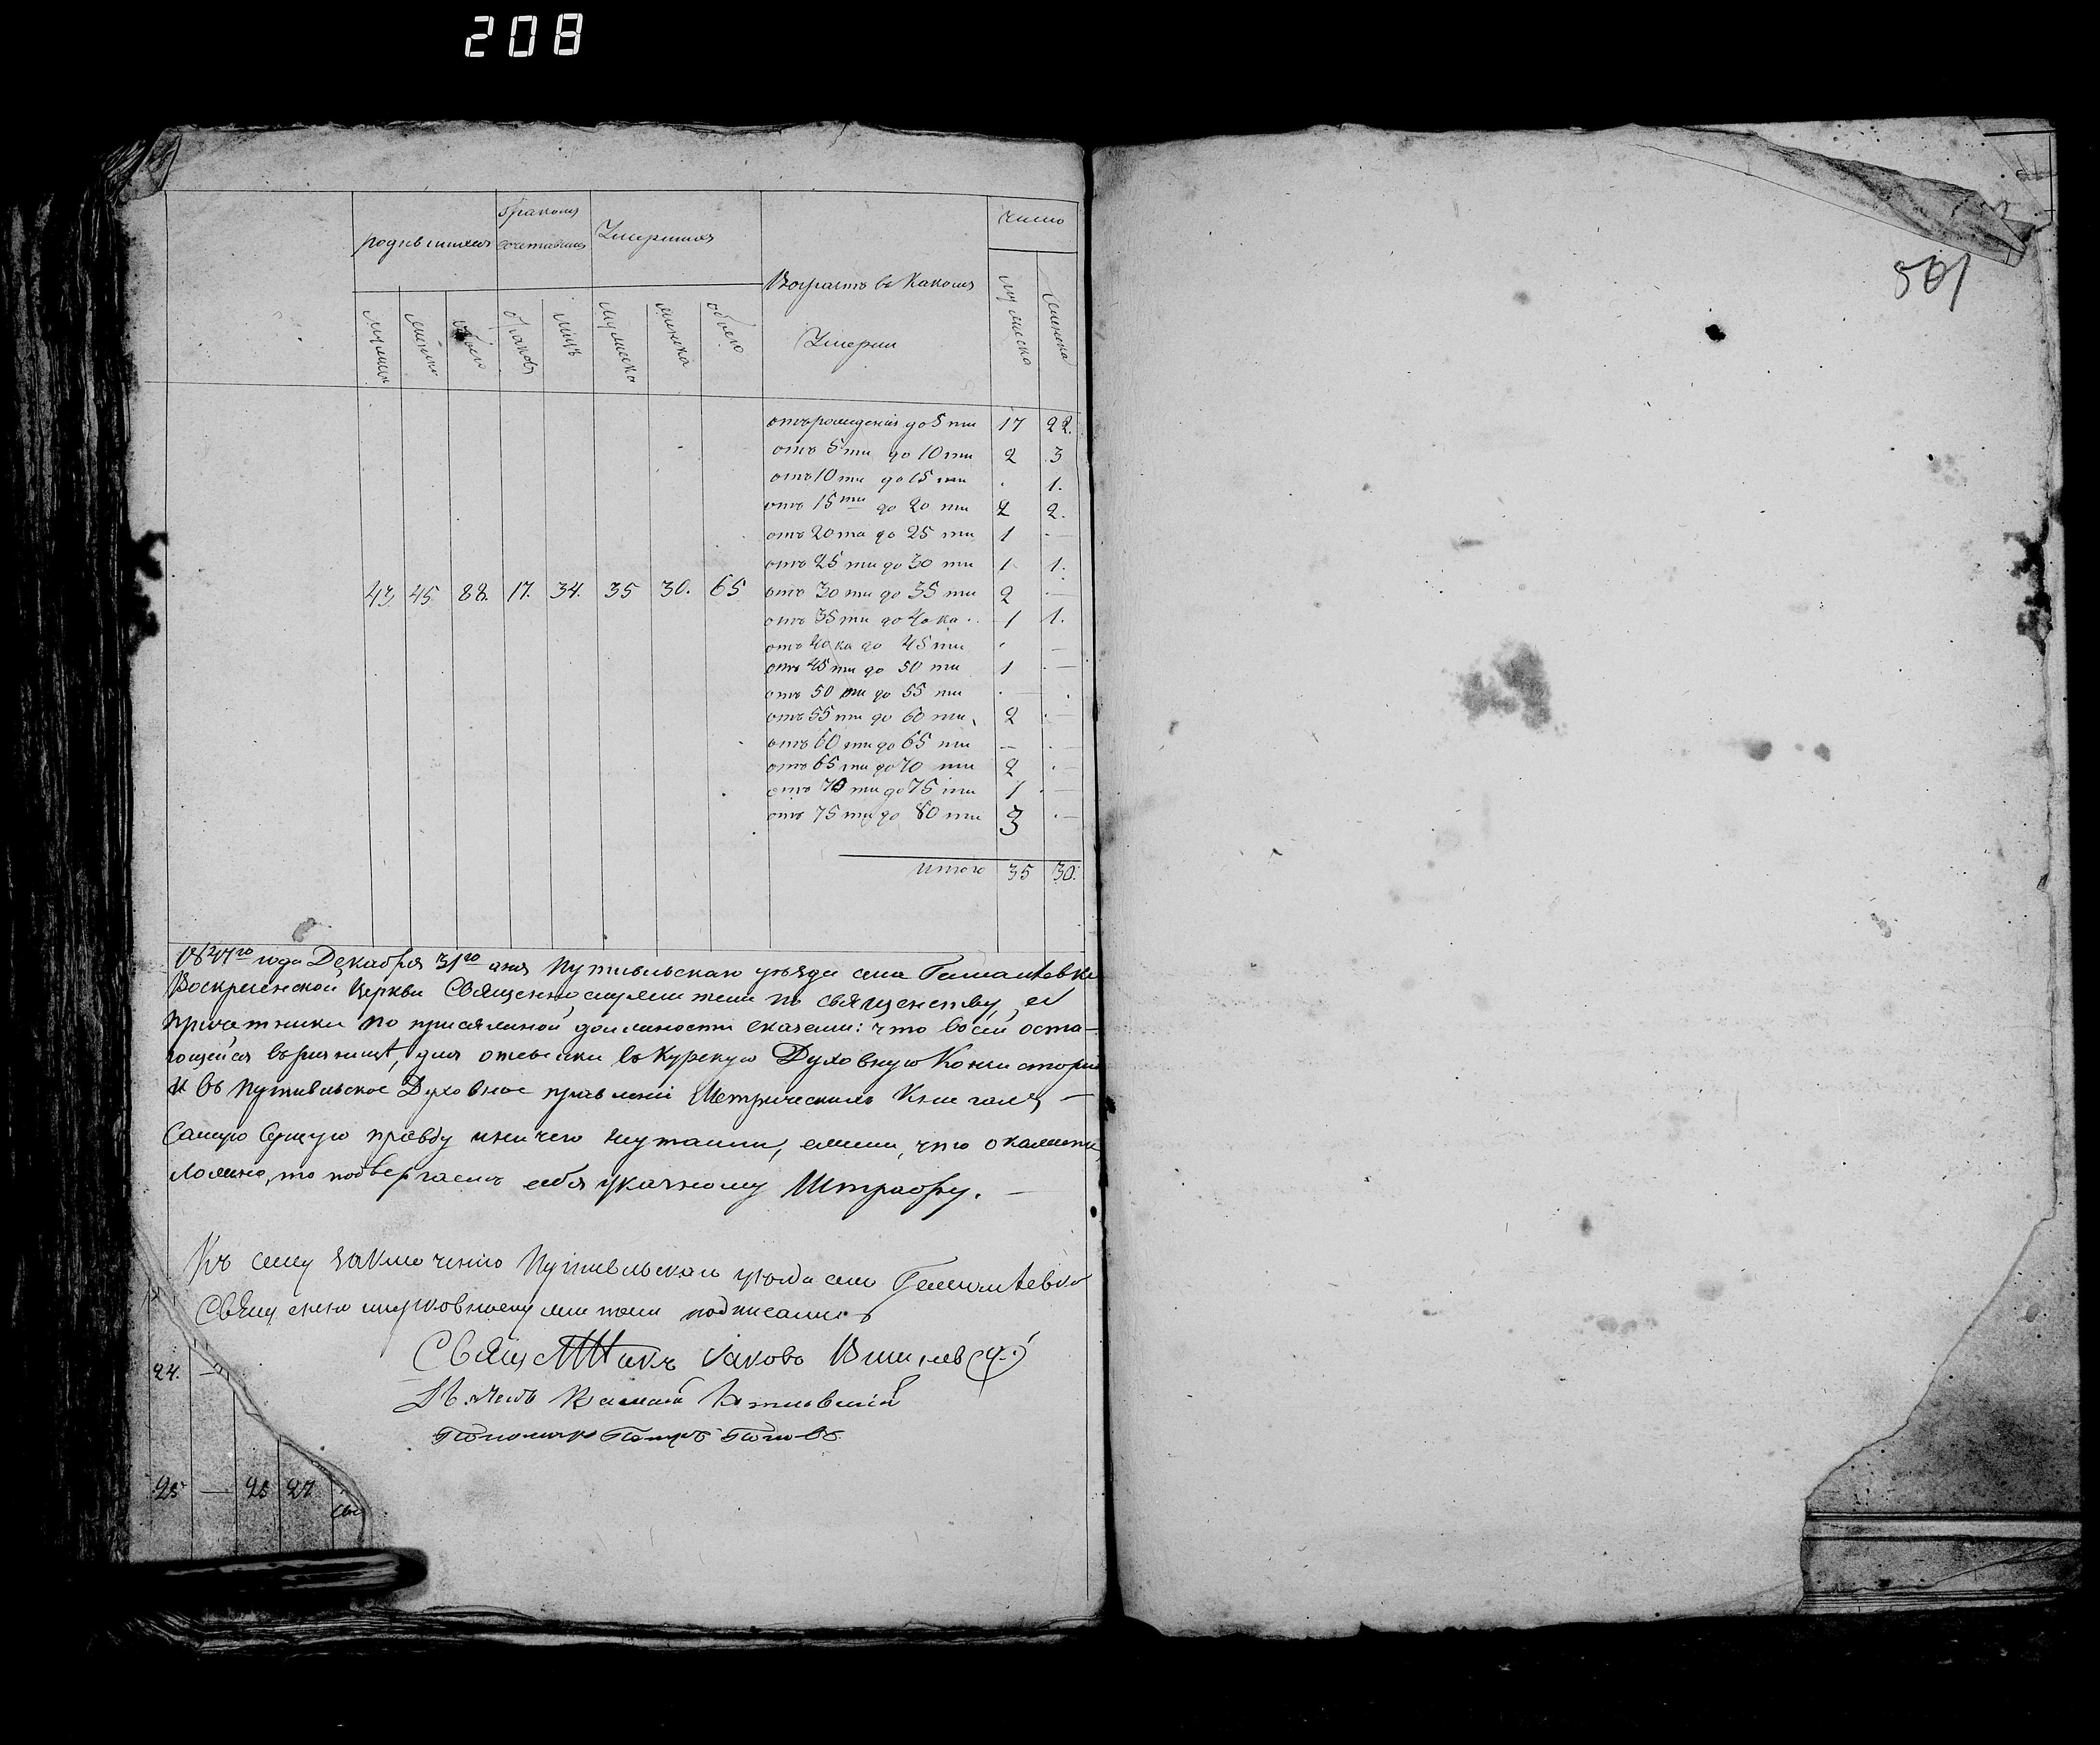 208
501
родившихся
бракомъ
сочетавшихся
Умершихъ
Возрастъ въ какомъ
Умерли
число
мужеска
женска
мужеска
женска
обоего
браковъ
лицъ
мужеска
женска
обоего
отъ рожденія до 5 ти 17 22.
отъ 5 ти до 10 ти 2 3
отъ 10 ти до 15 ти . 1.
отъ 15 ти до 20 ти 2 2.
отъ 20 та до 25 ти 1 . —
отъ 25 ти до 30 ти 1 1.
43 45 88. 17. 34. 35 30. 65 отъ 30 ти до 35 ти 2 . —
отъ 35 ти до 40 ка .. 1 1.
отъ 40 ка до 45 ти . —
отъ 45 ти до 50 ти 1 . —
отъ 50 ти до 55 ти . — .
отъ 55 ти до 60 ти 2 . —
отъ 60 ти до 65 ти — . —
отъ 65 ти до 70 ти 2 . —
отъ 70 ти до 75 ти 1 . —
отъ 75 ти до 80 ти 3 . —
итого 35 30.
1847го года Декабря 31го дня Путивльскаго уѣзда села
Воскресенской Церкви Священнослужители по священству, а
причетники по присяжной должности сказали: что во сей оста-
ющейся въ ризницѣ, для отсылки въ Курскую Духовную Консисторію
и въ Путивльское Духовное правленіе Метрическихъ Книгахъ —
самую сущую правду и ничего не утаили, ежели, что окажется
ложно, то подвергаемъ себя указному Штрафу. —
Къ сему заключенію Путивльскаго уѣзда села
Священно церковнослужители подписались
Священникъ Іаковъ
Дьячекъ
Пономарь Петръ Поповъ
24. —
25 — 26 27